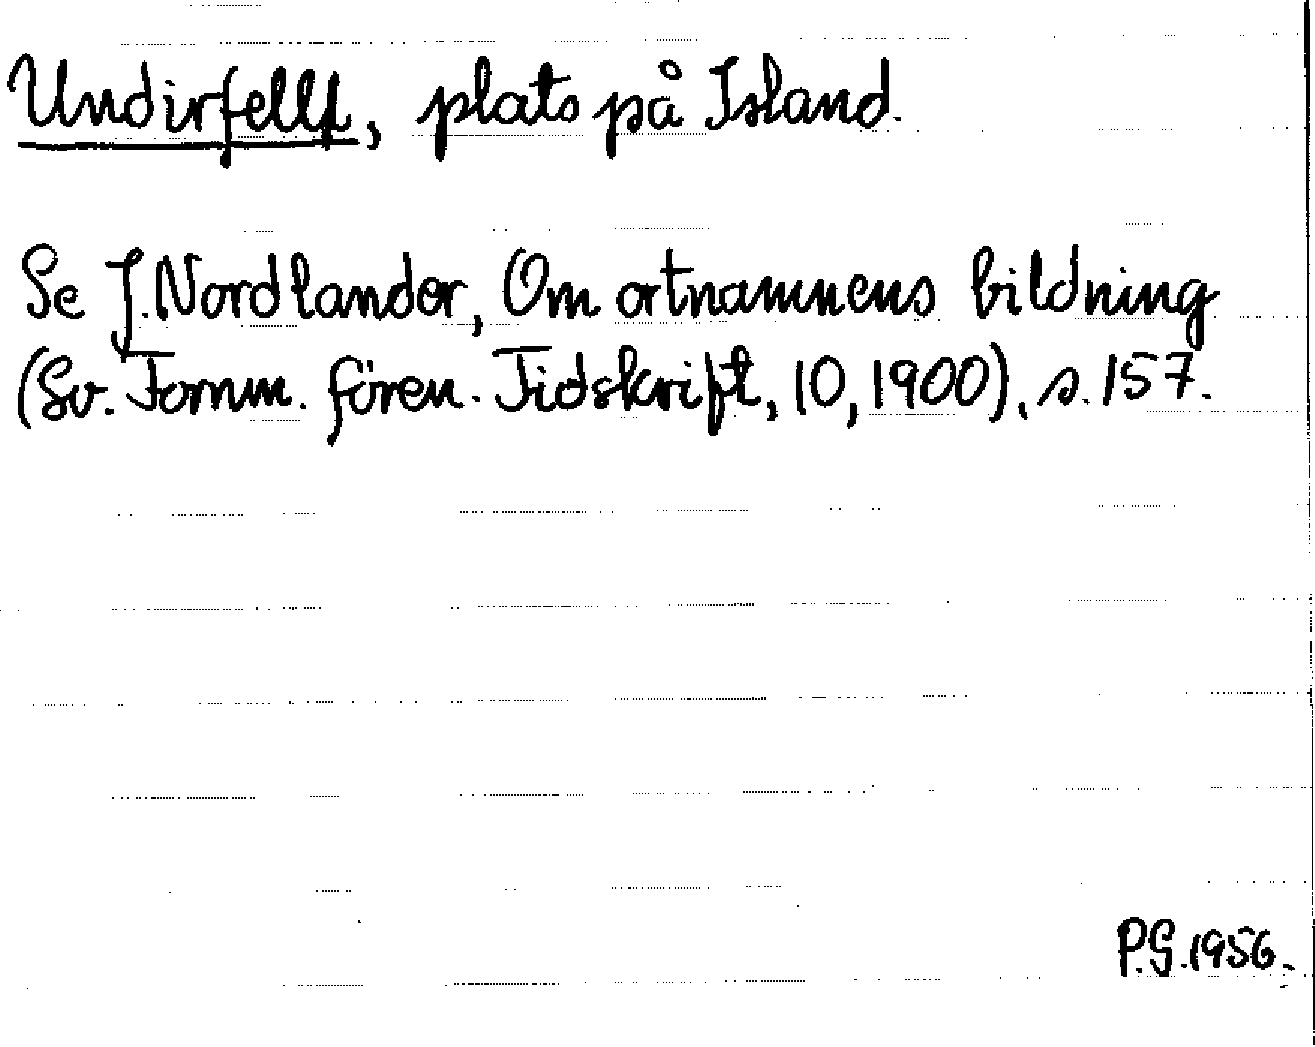 Undirfell, plats på Island.
Se J. Nordlander, Om ortnamnens bildning
(Sv. Fornm. fören. Tidskrift, 10, 1900), s. 157.
P.G. 1956.